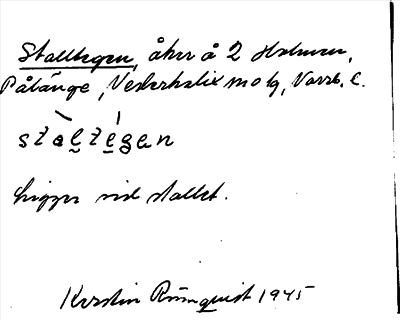 Stalltegen, åker å 2 Holmen,
Påläng​e, Nederkalix sn o tg, Norrb. l.
staltegan
ligger vid stallet.
Kerstin Rönnquist 1945